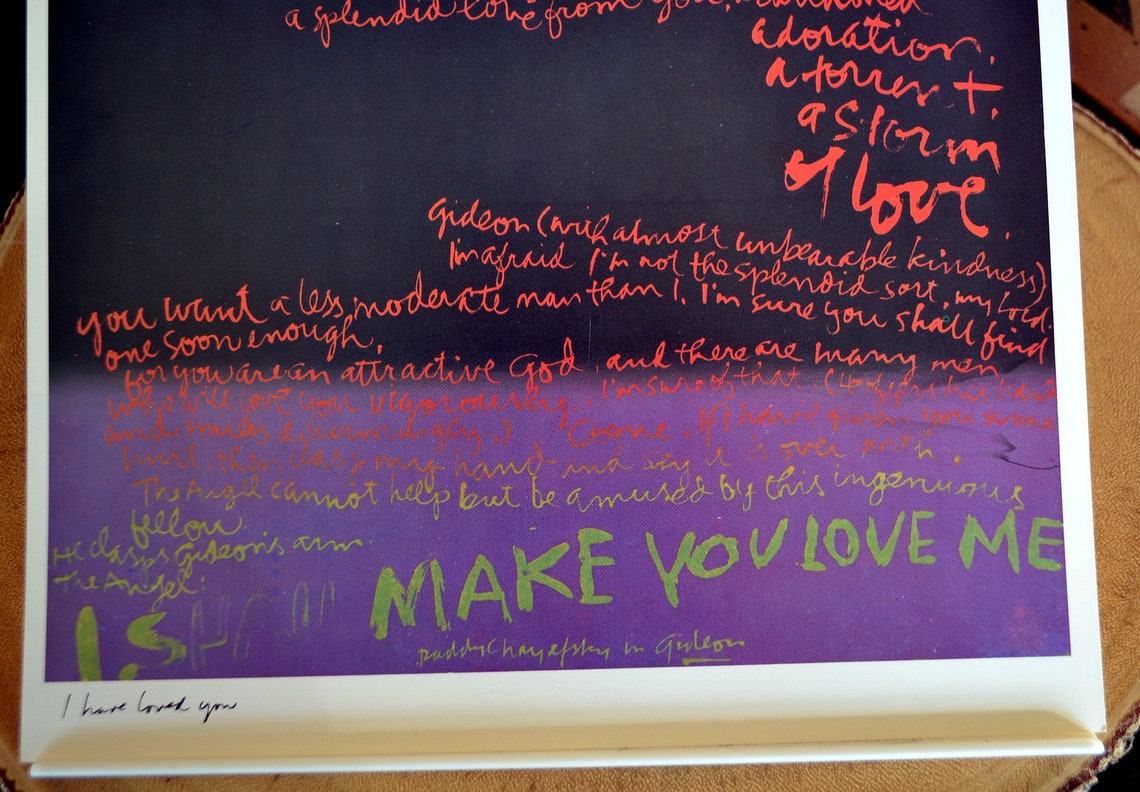 a splendid love from you, abandoned
adoration.
a torrent.
a storm
of love.
Gideon (with almost unbearable kindness)
I'm afraid I'm not the splendid sort, my Lord.
you want a less, moderate man than I. I'm sure you shall find
one soon enough,
for you are an attractive God, and there are many men
who will love you vigorously. I'm sure of that. (He offers his hand
and smiles disarmingly.) Come. If I have given you some
hurt, then clasp my hand and say it is over with.
The Angel cannot help but be amused by this ingenuous
fellow.
He clasps Gideon's arm.
The Angel:
I SHALL MAKE YOU LOVE ME
paddy Chayefsky in Gideon
I have loved you